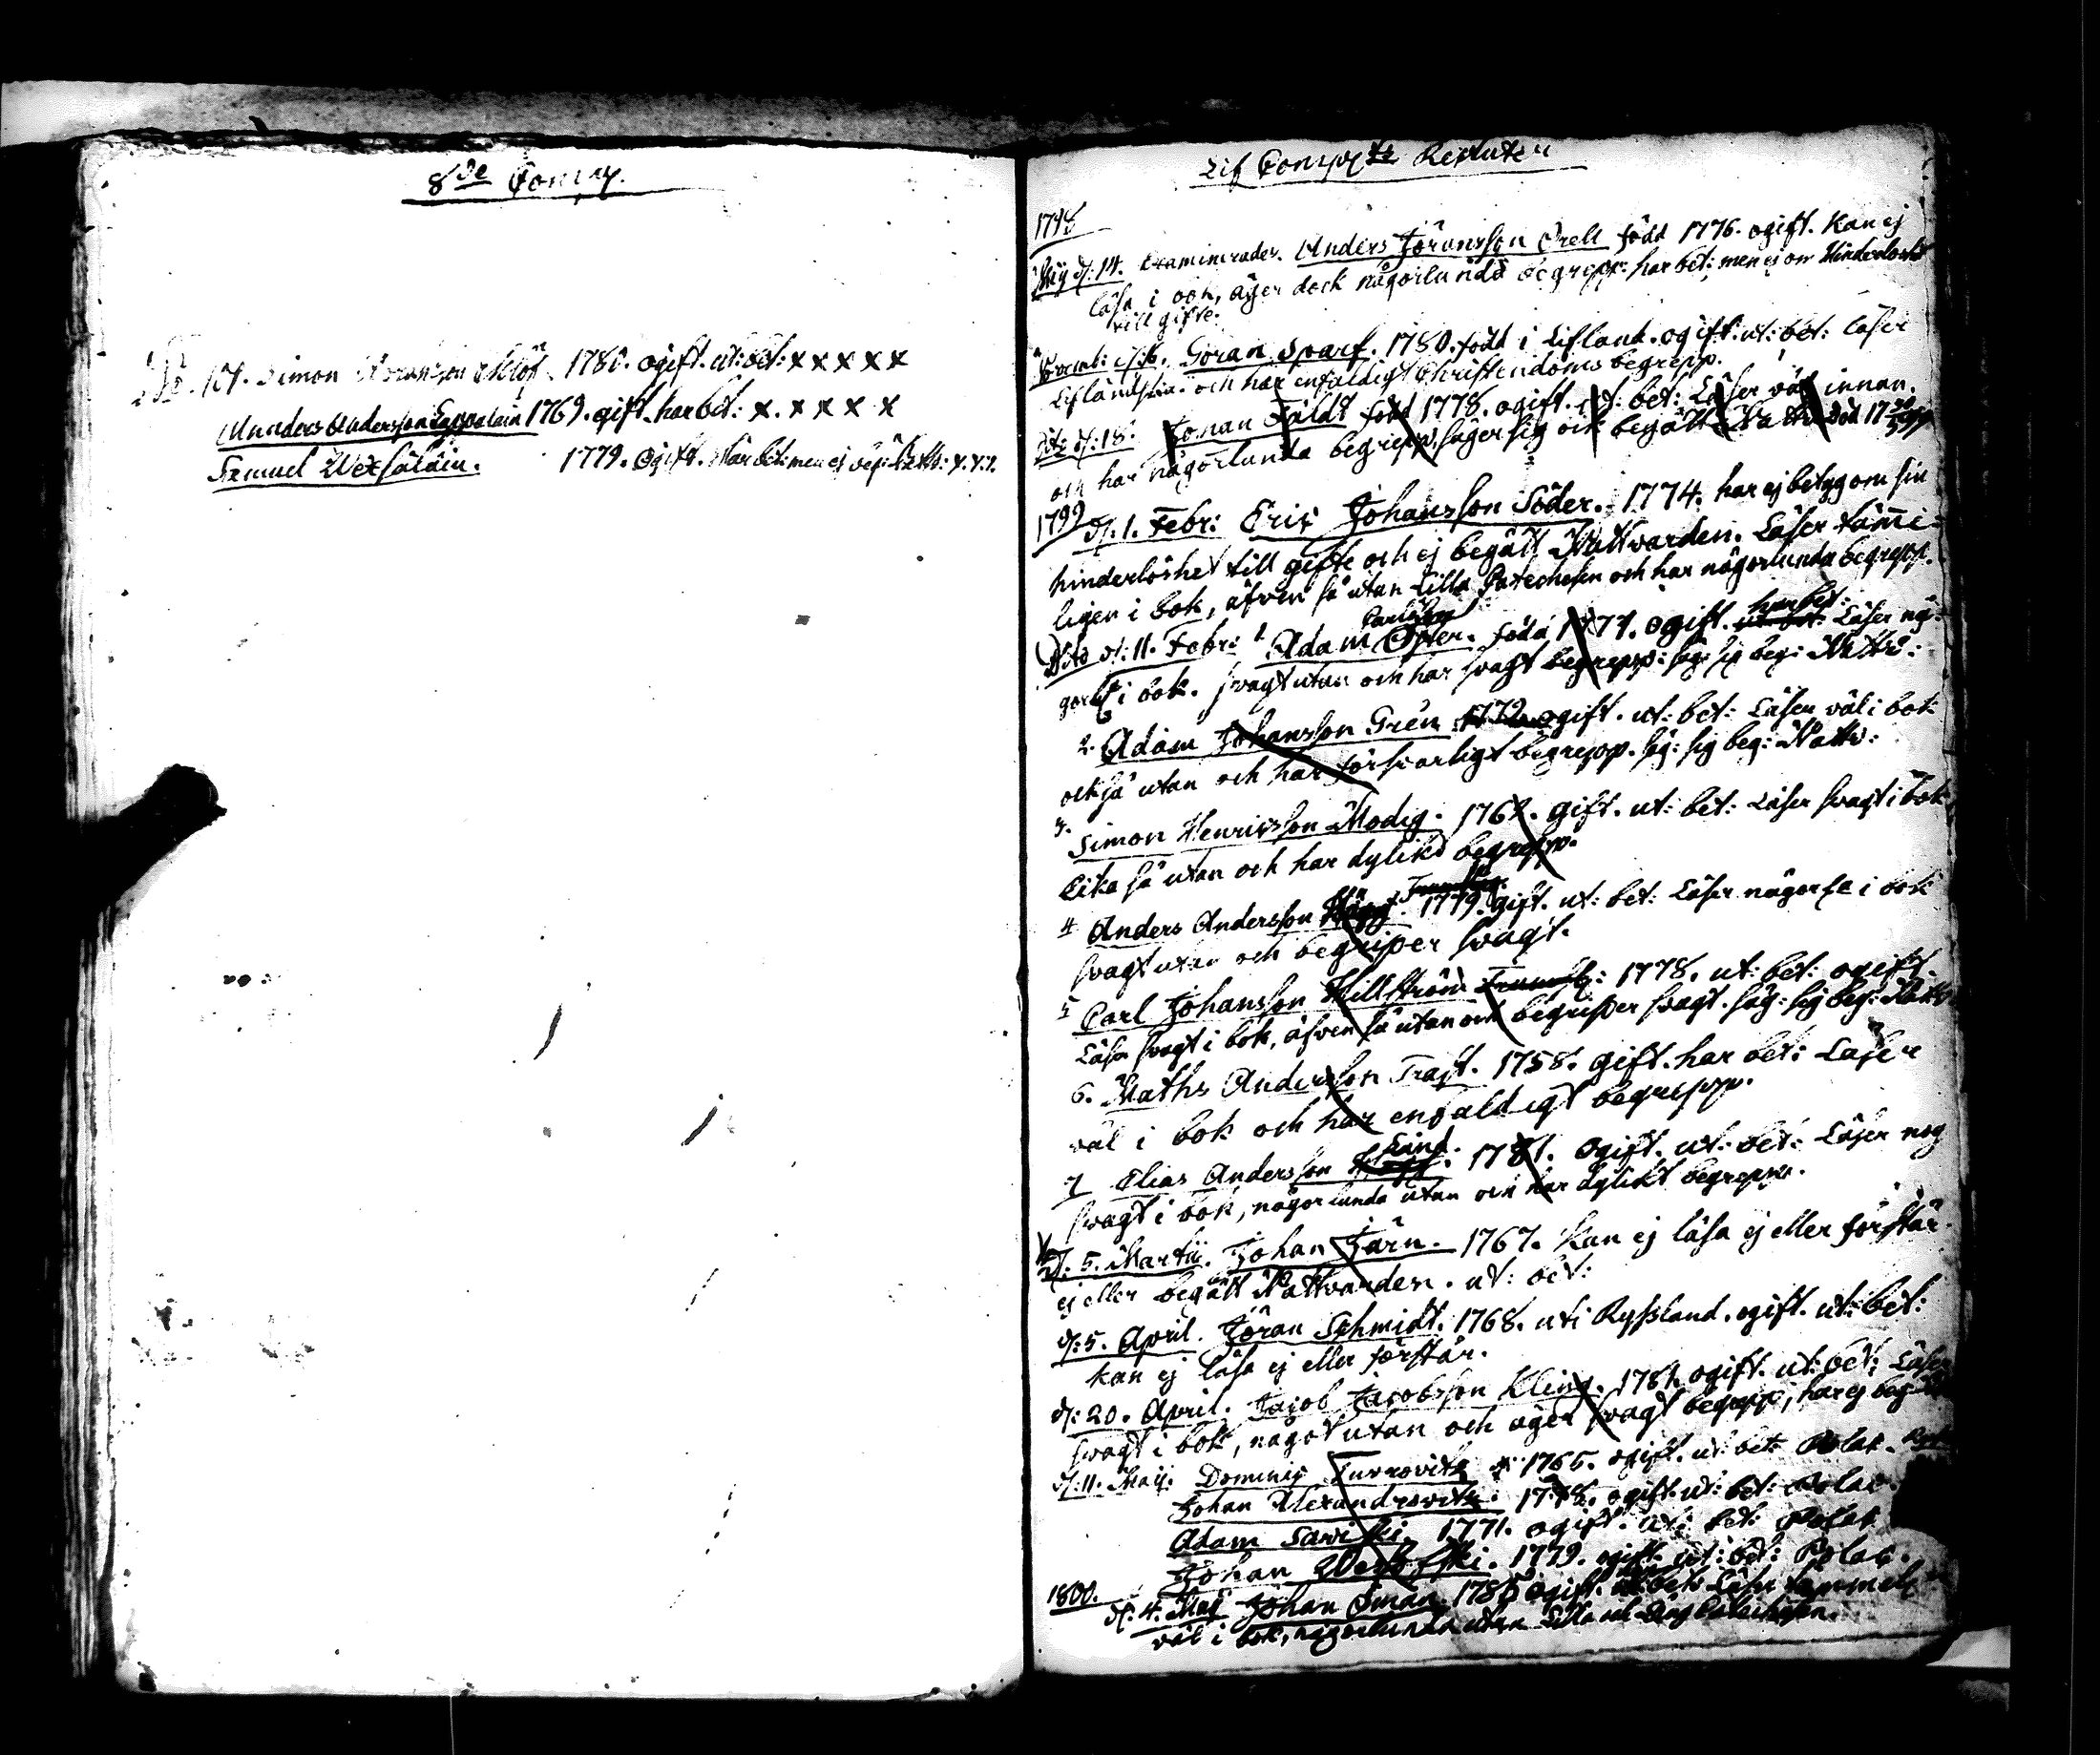 8de Comp.
No. 104. Simon 1780. ogift. ut: bet: x x x x x
Anders Andersson 1769. gift. har bet: x. x x x x
Samuel Wexsälain. 1779. Ogift. Har bet: men ej x. x. x.
Lif Comp Rekruter
1798
Maij d: 14. Examinerades. Anders Jöransson Orell född 1776. ogift. Kan ej
läsa i bok, äger dock någorlunda begrepp. har bet: men ej om Hinderlöshet
till gifte.
d: 6. Göran Sparf. 1780. född i Lifland. ogift. ut: bet: läser
Lifländska och har enfaldigt Christendoms begrepp.
Dito d: 18. Jonan Fäldt född 1778. ogift. ut: bet: Läser väl innan.
och har någorlunda begrepp, säger sig ock begått Nattv:
1799
d. 1. Febr: Eric Johansson Söder. 1774. har ej betyg om sin
hinderlöshet till gifte och ej begått Nattvarden. Läser tämme-
ligen i bok, äfven så utan Lilla Catechesen och har någorlunda begrepp.
Dito d: 11. Febr: 1 Adam Carlsson Öster. född 1777. ogift. ut: bet: har bet: Läser nå-
gorl: i bok. svagt utan och har svagt begrepp: säg: sig beg: Nattv:
2. Adam Johansson Grén 1772. ogift. ut: bet: Läser väl i bok
också utan och har försvarligt begrepp. säg: sig beg: Nattv:
3. Simon Henricsson Modig. 1762. gift. ut: bet: Läser svagt i bok
lika så utan och har dylikt begrepp.
4 Anders Andersson 1779. gift. ut: bet: Läser någorl: i bok
svagt utan och begriper svagt.
5 Carl Johansson Hillström 1778. ut: bet: ogift.
Läser svagt i bok, äfven så utan och begriper svagt. säg: sig beg: Nattv
6. Maths Andersson Trast. 1758. gift. har bet: Läser
väl i bok och har enfaldigt begrepp.
7 Elias Andersson Lind. 1781. Ogift. ut: bet: Läser nog
svagt i bok, någorlunda utan och har dylikt begrepp.
d: 5. Martii. Johan Järn. 1767. Kan ej läsa ej eller förstår
ej eller begått Nattvarden. ut: bet:
d: 5. April. Jöran Schmidt. 1768. uti Ryssland. ogift. ut: bet:
kan ej läsa ej eller förstår.
d: 20. April. Jacob Jacobsson Kling. 1781. ogift. ut: bet: Läser
svagt i bok, något utan och äger svagt begrepp, har ej beg
d: 11. Maij. Dominic 1765. ogift. ut: bet: Polac.
Johan Alexandrowitz. 1778. ogift. ut: bet: Polac.
Adam Sawiski. 1771. ogift. ut: bet: Polac
Johan 1779. ogift. ut: bet: Polac.
1800.
d: 4. Maij Johan Öman. 1785 ogift. bet: Läser
väl i bok, någorlunda utan Lilla Catechesen.